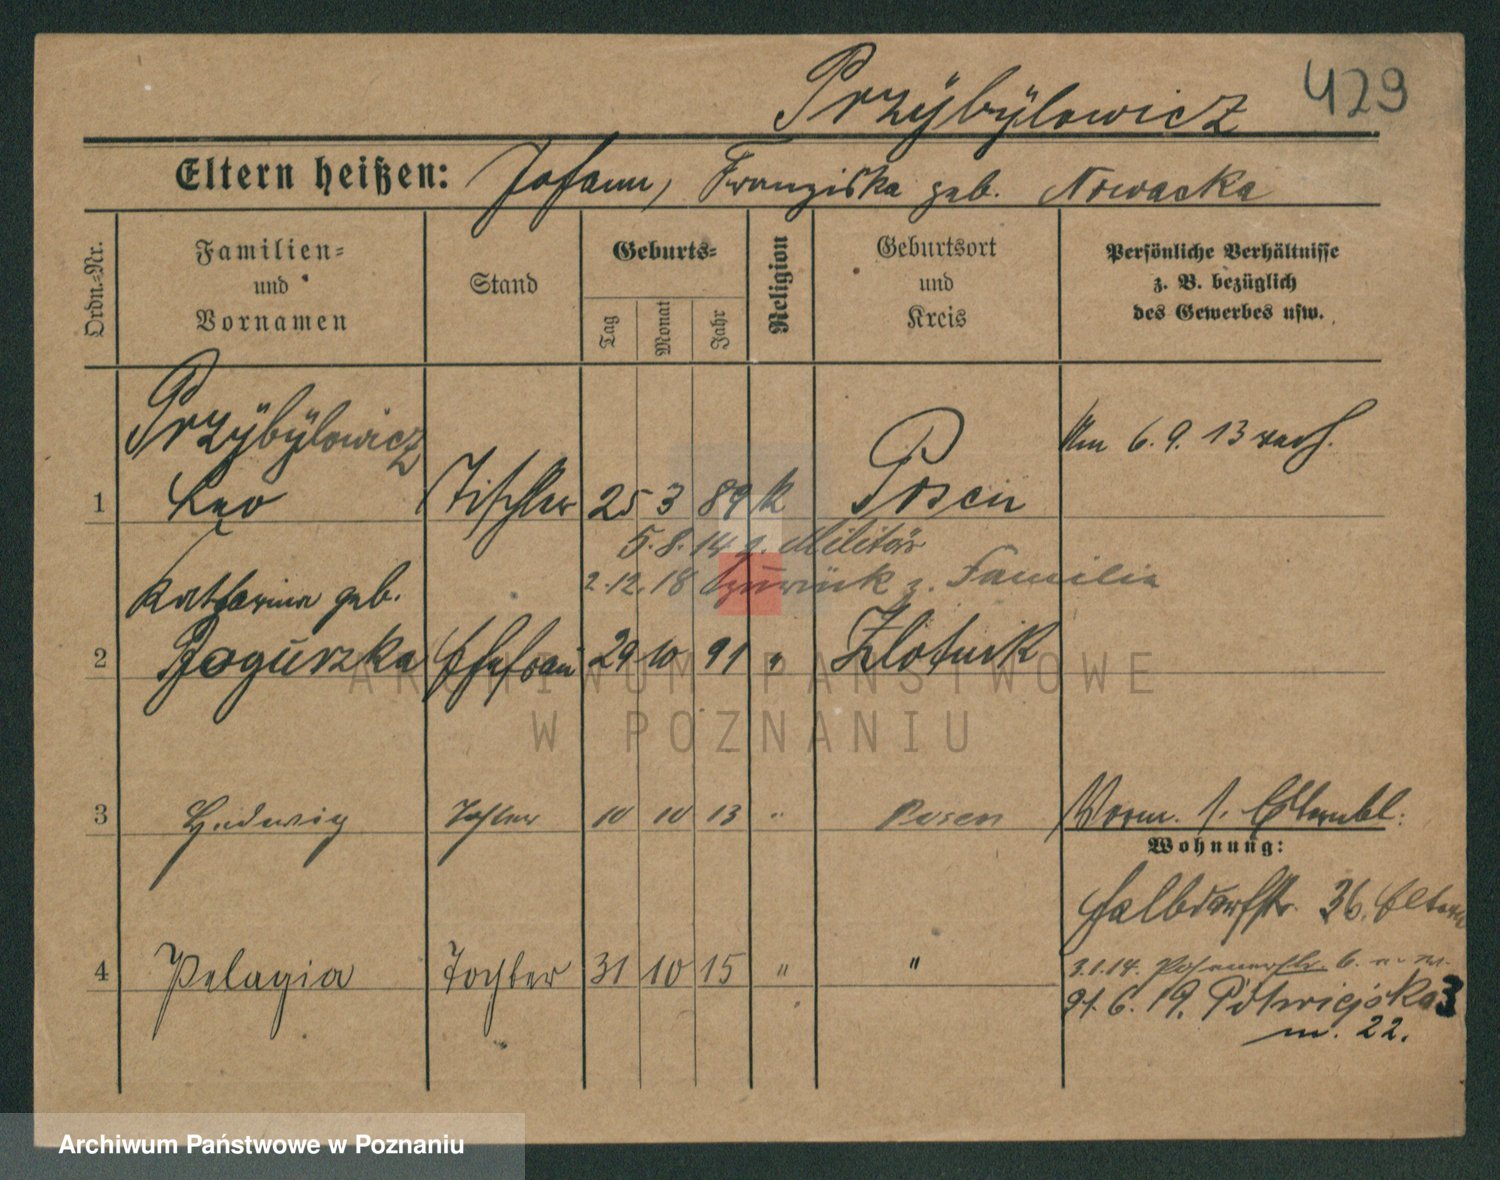 Przÿbÿlowicz 429
Eltern heißen: Johann, Franziska geb. Nowacka
Ordn.-Nr.
Familien-
und
Vornamen
Stand
Geburts-
Tag
Monat
Jahr
Religion
Geburtsort
und
Kreis
Persönliche Verhältnisse
z. B. bezüglich
des Gewerbes usw.
Przÿbÿlowicz
1 Leo Tischler 25 3 89 k Posen
Am 6. 9. 13 verh.
5. 8. 14 z. Militär
2. 12. 18 zurück z. Familie
Katharina geb.
2 Boguszka Ehefrau 29 10 91 " Zlotnik
3 Hedwig Tochter 10 10 13 " Posen
Vorm. 1. Elternbl.
Wohnung:
36. Eltern
4 Pelagia Tochter 31 10 15 " "
3.1.14. 6.
21. 6. 19. 3
m. 22.
ARCHIWUM PAŃSTWOWE
W POZNANIU
Archiwum Państwowe w Poznaniu